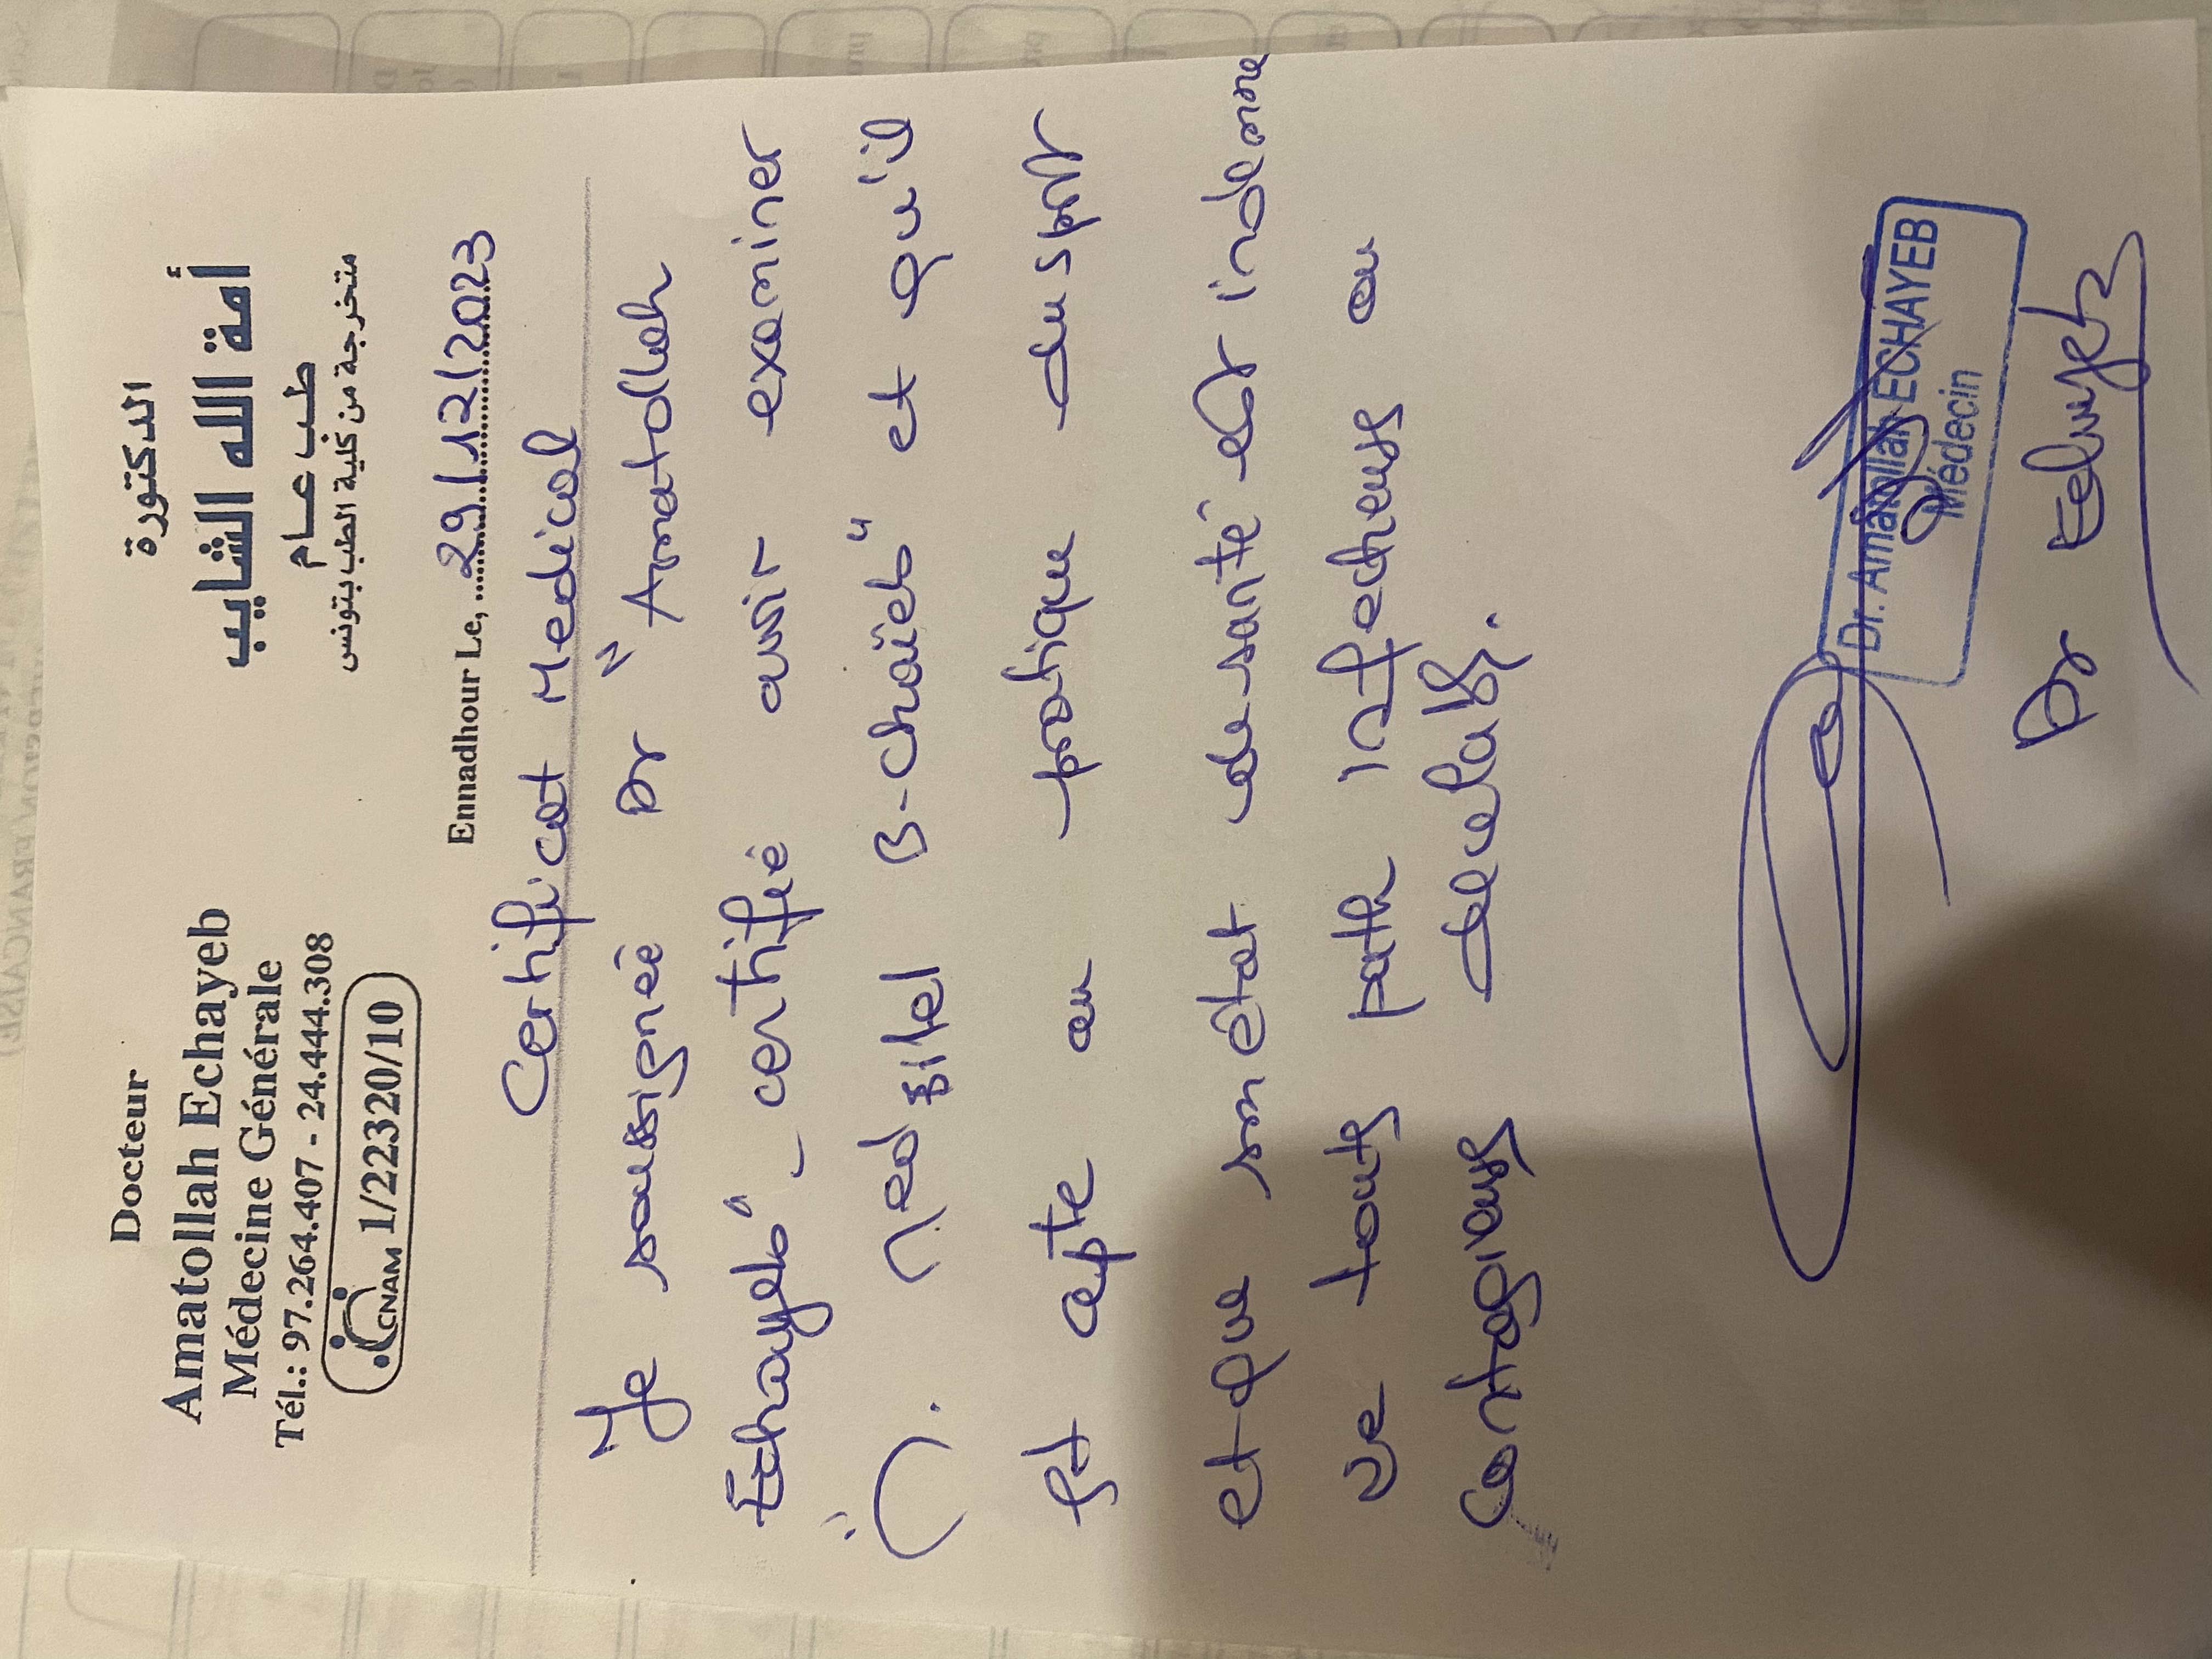 Docteur
Amatollah Echayeb
Médecine Générale
Tél.: 97.264.407 - 24.444.308
CNAM 1/22320/10
الدكتورة
أمة الله الشايب
طب عام
متخرجة من كلية الطب بتونس
Ennadhour Le, 29/12/2023
Certificat Medical
Je soussignée Dr "Amatollah
Echayeb" certifié avoir examiner
Med B-Chaïeb" et qu'il
est apte au pratique du sport
et que son état de santé est indemne
de toute path infectieuse ou
contagieuse decelable.
Dr. Amatillah ECHAYEB
Médecin
Dr Echayeb